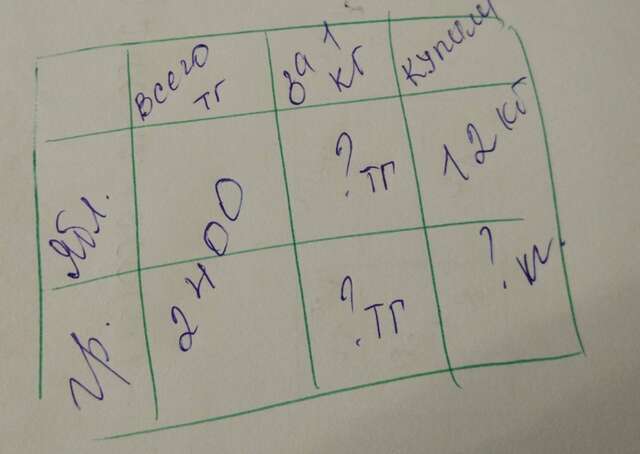 всего тг
за 1 кг
купили
Ябл.
? тг
12 кг
2400
гр.
? тг
? кг.